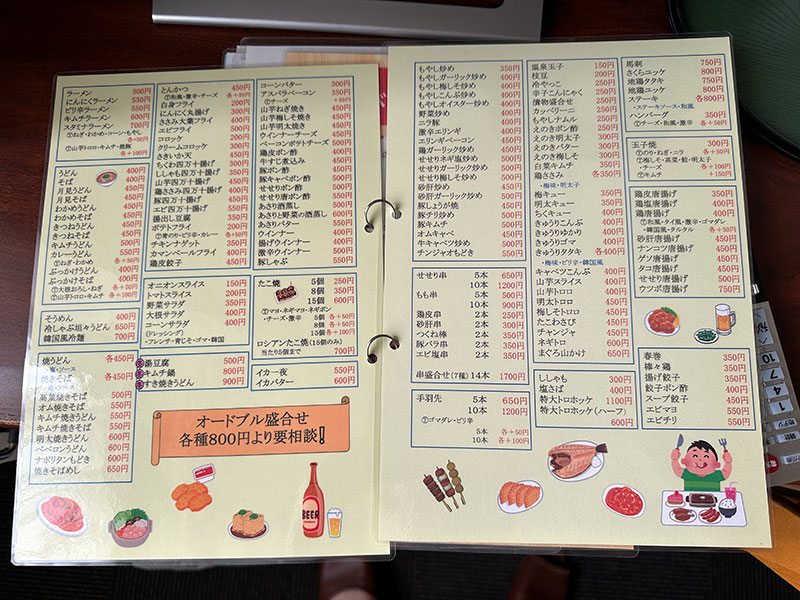 ラーメン 500円
にんにくラーメン 550円
ピリ辛ラーメン 550円
キムチラーメン 600円
スタミナラーメン 700円
Ⓣねぎ・わかめ・コーン・もやし
各+50円
Ⓣ山芋トロロ・キムチ・焼豚
各+100円
うどん 400円
そば 400円
月見うどん 450円
月見そば 450円
わかめうどん 450円
わかめそば 450円
きつねうどん 450円
きつねそば 450円
キムチうどん 550円
カレーうどん 550円
Ⓣねぎ・わかめ 各+50円
ぶっかけうどん 400円
ぶっかけそば 400円
Ⓣ大根おろし・ねぎ 各+50円
Ⓣ山芋トロロ・キムチ 各+100円
そうめん 400円
冷しゃぶ坦々うどん 650円
韓国風冷麺 700円
焼うどん 各450円
焼きそば 各450円
高菜焼きそば 500円
オム焼きそば 550円
キムチ焼きうどん 550円
キムチ焼きそば 550円
明太焼きうどん 550円
ペペロンうどん 550円
ナポリタンもどき 550円
焼きそばめし 650円
とんかつ 450円
Ⓣ和風・激辛・チーズ 各+50円
白身フライ 200円
にんにく丸揚げ 300円
ささみ大葉フライ 350円
エビフライ 500円
コロッケ 300円
クリームコロッケ 300円
さきいか天 450円
ちくわ四万十揚げ 300円
ししゃも四万十揚げ 350円
山芋四万十揚げ 400円
鶏ささみ四万十揚げ 450円
豚四万十揚げ 450円
エビ四万十揚げ 550円
揚出し豆腐 350円
ポテトフライ 200円
Ⓣ青のり・ピリ辛・カレー 各+50円
チキンナゲット 350円
カマンベールフライ 400円
鶏皮餃子 450円
オニオンスライス 150円
トマトスライス 200円
野菜サラダ 350円
大根サラダ 400円
コーンサラダ 400円
(ドレッシング)
・フレンチ・青じそ・ゴマ・韓国
湯豆腐 500円
キムチ鍋 800円
すき焼きうどん 900円
コーンバター 300円
アスパラベーコン 350円
Ⓣチーズ +50円
山芋ねぎ焼き 400円
山芋梅しそ焼き 450円
山芋明太焼き 500円
ウインナーチーズ 450円
ベーコンポテトチーズ 500円
鶏皮ポン酢 400円
牛すじ煮込み 400円
豚ポン酢 450円
豚キャベポン酢 500円
せせりポン酢 450円
せせり唐ポン酢 450円
あさり酒蒸し 500円
あさりと野菜の酒蒸し 600円
あさりバター 500円
ウインナー 400円
揚げウインナー 400円
激辛ウインナー 500円
豚しゃぶ 550円
たこ焼 5個 250円
8個 350円
15個 600円
Ⓣマヨ・ネギマヨ・ネギポン
・チーズ・激辛 5個 各+50円
8個 各+50円
15個 各+100円
ロシアンたこ焼(15個のみ)
当たり5個まで 700円
イカ一夜 550円
イカバター 600円
オードブル盛合せ
各種800円より要相談!
BEER
もやし炒め 350円
もやしガーリック炒め 400円
もやし梅しそ炒め 400円
もやしこんぶ炒め 400円
もやしオイスター炒め 400円
野菜炒め 400円
ニラ豚 500円
激辛エリンギ 400円
エリンギベーコン 400円
鶏ガーリック炒め 450円
せせりネギ塩炒め 450円
せせりガーリック炒め 450円
せせり梅しそ炒め 450円
砂肝炒め 450円
砂肝ガーリック炒め 450円
豚しょうが焼 450円
豚チリ炒め 450円
豚キムチ 500円
オムキャベ 450円
牛キャベツ炒め 500円
チンジャオもどき 550円
せせり串 5本 650円
10本 1200円
もも串 5本 500円
10本 900円
鶏皮串 5本 450円
砂肝串 5本 500円
つくね棒 5本 450円
豚バラ串 5本 500円
エビ塩串 5本 550円
串盛合せ(7種) 14本 1700円
手羽先 5本 650円
10本 1200円
Ⓣゴマダレ・ピリ辛
5本 各+50円
10本 各+100円
温泉玉子 150円
枝豆 200円
冷やっこ 200円
辛子こんにゃく 250円
漬物盛合せ 250円
カッペリーニ 250円
もやしナムル 250円
えのきポン酢 250円
えのき明太子 300円
えのきバター 300円
えのき梅しそ 300円
白菜キムチ 350円
鶏ささみ 各350円
・梅味・明太子
梅キュー 300円
明太キュー 350円
ちくキュー 300円
きゅうりこんぶ 300円
きゅうりゆかり 300円
きゅうりゴマ 300円
きゅうりタタキ 各400円
・梅味・ピリ辛・韓国風
キャベツこんぶ 300円
山芋スライス 300円
山芋トロロ 400円
明太トロロ 450円
梅しそトロロ 450円
たこわさび 450円
チャンジャ 450円
ネギトロ 600円
まぐろ山かけ 650円
ししゃも 300円
塩さば 400円
特大トロホッケ 1100円
特大トロホッケ(ハーフ)
600円
馬刺 750円
さくらユッケ 800円
地鶏タタキ 750円
地鶏ユッケ 800円
ステーキ 各800円
・ステーキソース・和風
ハンバーグ 350円
Ⓣチーズ・和風・激辛 各+50円
玉子焼 300円
Ⓣのり・ねぎ・ニラ 各+50円
Ⓣ梅しそ・高菜・鮭・明太子
・チーズ 各+100円
Ⓣキムチ +150円
鶏皮唐揚げ 350円
鶏塩唐揚げ 400円
鶏唐揚げ 400円
Ⓣ和風・タイ風・激辛・ゴマダレ
・韓国風・タルタル 各+50円
砂肝唐揚げ 400円
ナンコツ唐揚げ 450円
ゲソ唐揚げ 450円
タコ唐揚げ 450円
せせり唐揚げ 500円
ウツボ唐揚げ 750円
春巻 350円
棒々鶏 350円
揚げ餃子 350円
餃子ポン酢 400円
スープ餃子 450円
エビマヨ 550円
エビチリ 550円